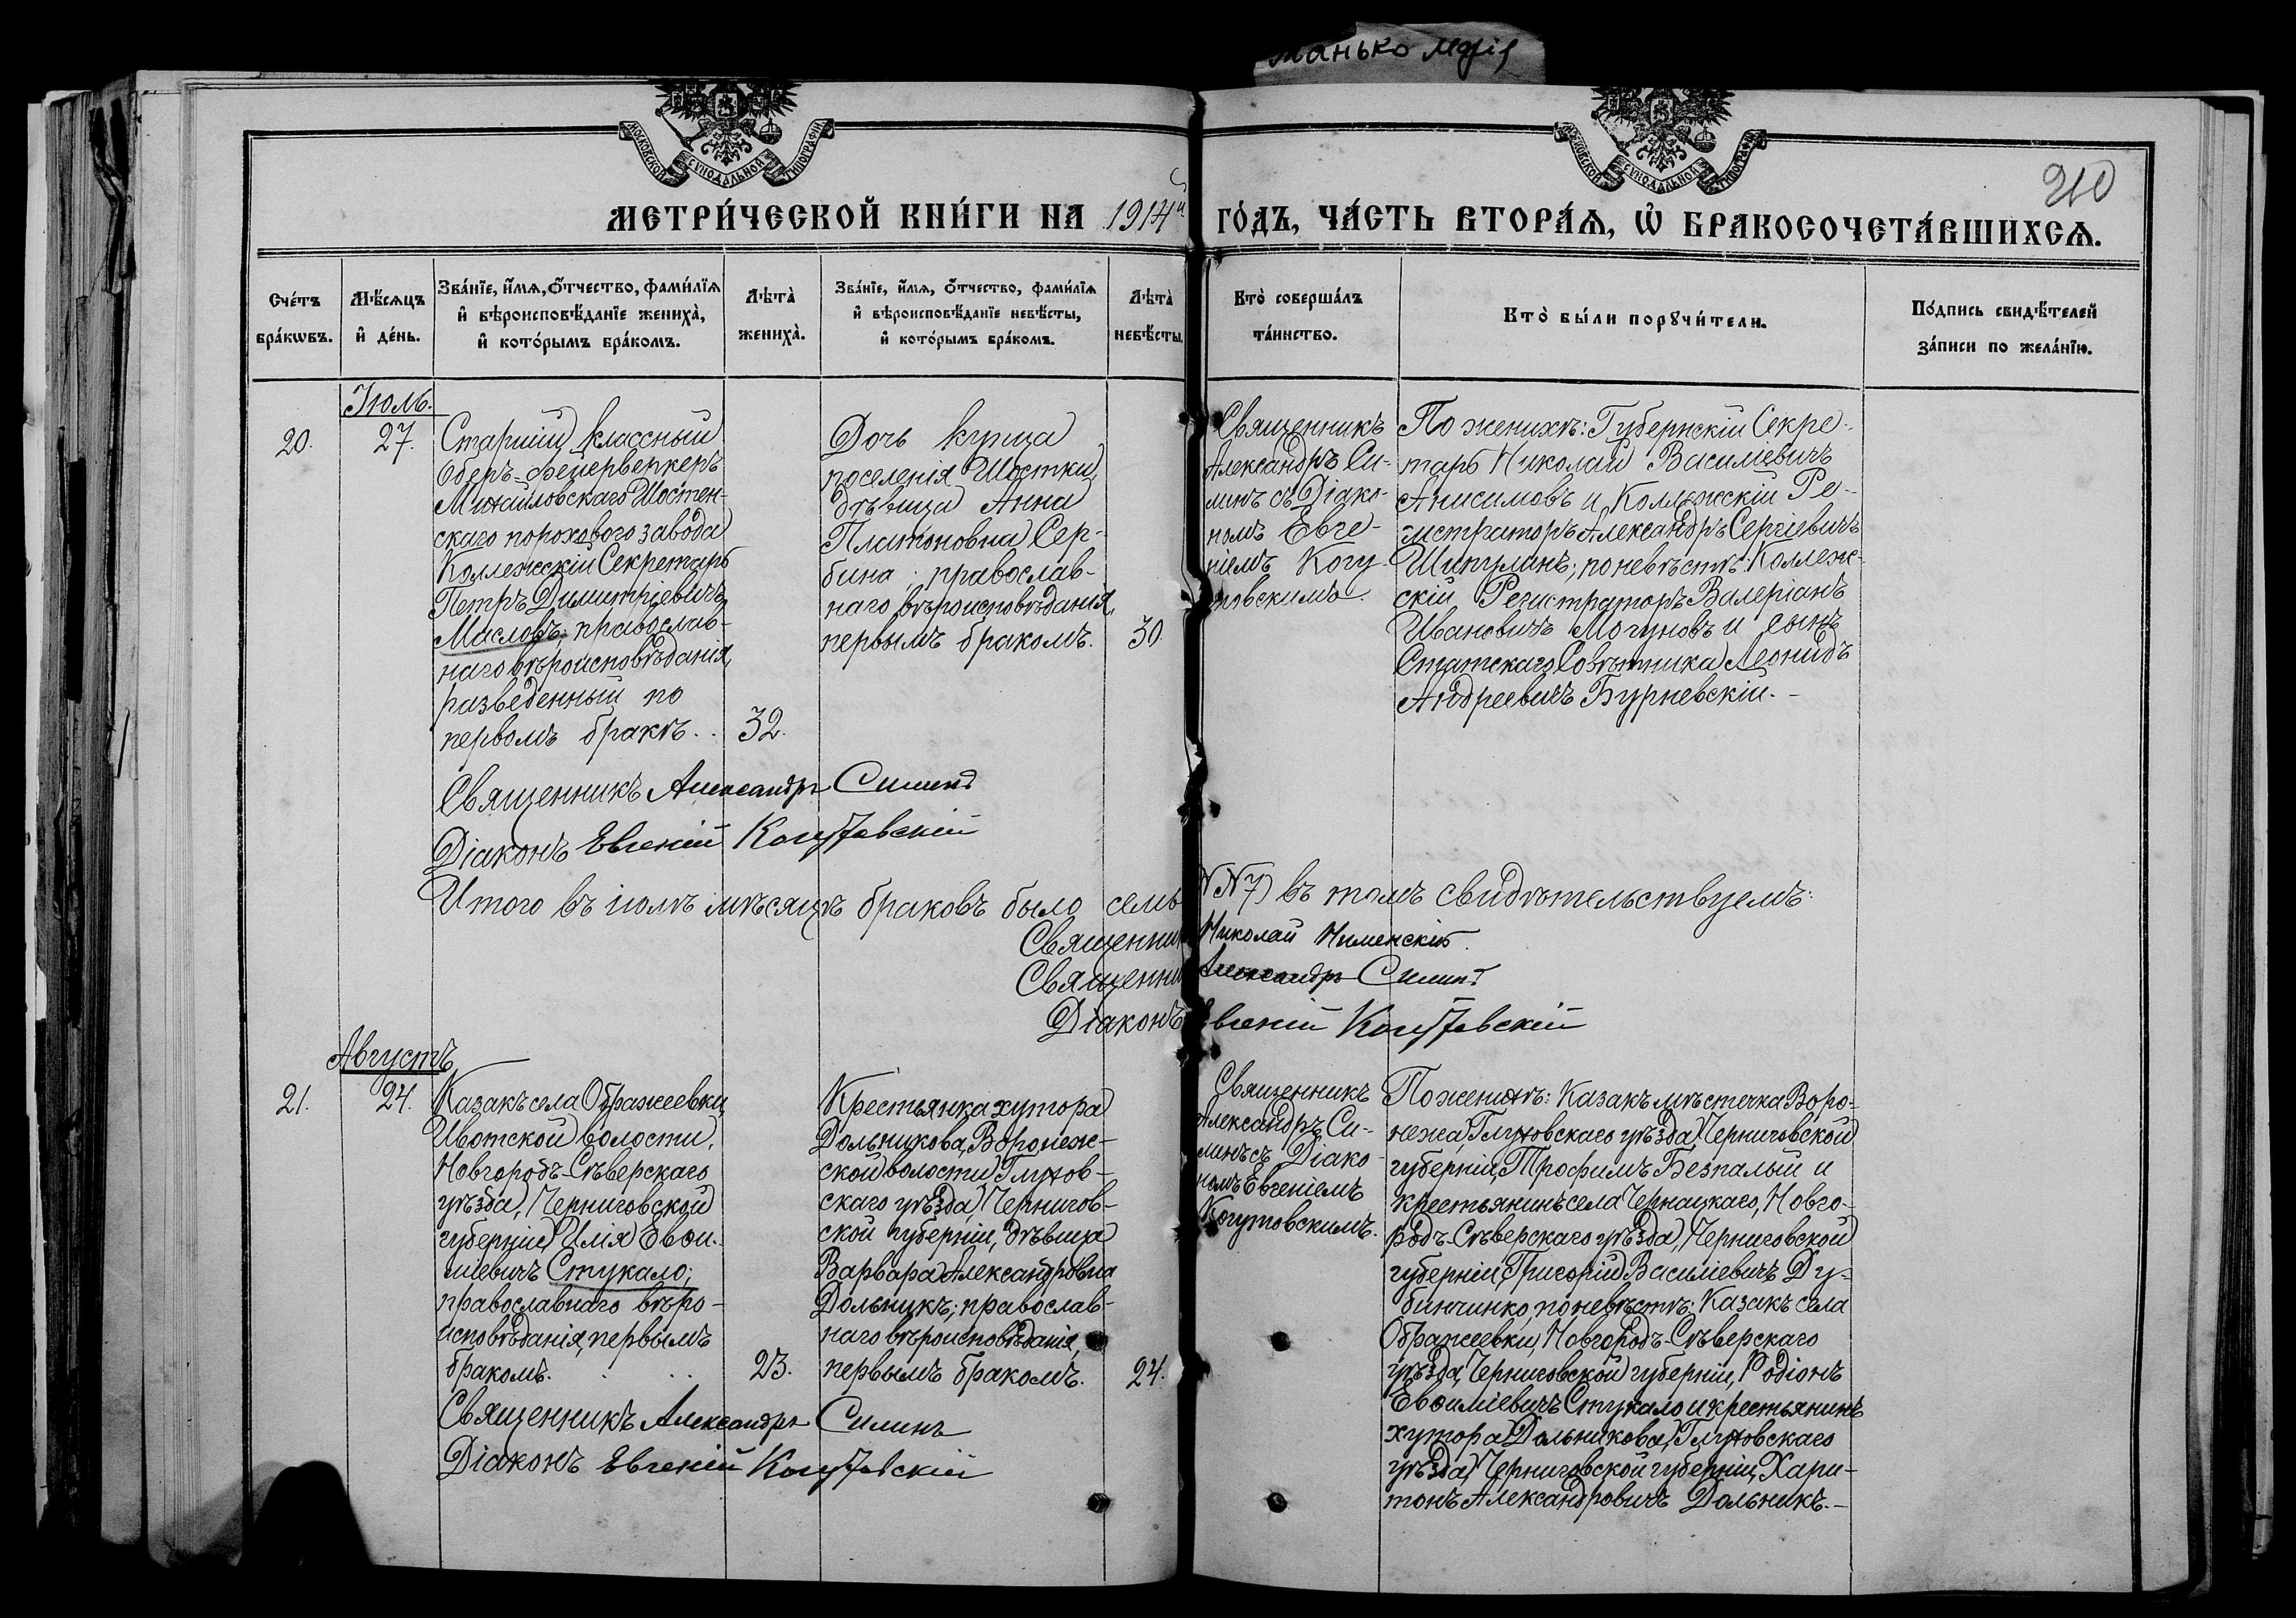 манько
МОСКОВСКОЙ СѴНОДАЛЬНОЙ ТИПОГРАФІИ
МОСКОВСКОЙ СѴНОДАЛЬНОЙ ТИПОГРАФІИ
210
МЕТРИ́ЧЕСКОЙ КНИ́ГИ НА 1914й ГО́ДЪ, ЧА́СТЬ ВТОРА́Ѧ, Ѡ҆ БРАКОСОЧЕТА́ВШИХСѦ.
Сче́тъ
бра́кѡвъ.
Мѣ́сяцъ
и҆ де́нь.
Зва́нїе, и҆́мѧ, ѻ҆́тчество, фами́лїѧ
и҆ вѣроисповѣ́данїе жениха̀,
и҆ кото́рымъ бра́комъ.
Лѣта̀
жениха̀.
Зва́нїе, и҆́мѧ, ѻ҆́тчество, фами́лїѧ
и҆ вѣроисповѣ́данїе невѣ́сты,
и҆ кото́рымъ бра́комъ.
Лѣта̀
невѣ́сты.
Кто̀ соверша́лъ
та́инство.
Кто̀ бы́ли порꙋчи́тели.
По́дпись свидѣ́телей
за́писи по жела́нїю.
Іюль.
20.
27.
Старшій классный
Оберъ-Фейерверкеръ
Михайловскаго Шостен-
скаго порохового завода
Коллежскій Секретарь
Петръ Димитріевичъ
Масловъ; православ-
наго вѣроисповѣданія,
разведенный по
первомъ бракѣ. .
32.
Дочь купца
поселенія Шостки,
дѣвица Анна
Платоновна Сер-
бина; православ-
наго вѣроисповѣданія,
первымъ бракомъ.
30.
Священникъ
Александръ Си-
линъ съ Діако-
номъ Евге-
ніемъ Когу-
товскимъ.
По женихѣ: Губернскій Секре-
тарь Николай Васильевичъ
Анисимовъ и Коллежскій Ре-
гистраторъ Александръ Сергіевичъ
Шипулинъ; по невѣстѣ: Коллеж-
скій Регистраторъ Валеріанъ
Ивановичъ Могуновъ и сынъ
Статскаго Совѣтника Леонидъ
Андреевичъ Бурневскій. -
Священникъ Александръ Силинъ
Діаконъ Евгеній Когутовскій
Итого въ іюлѣ мѣсяцѣ браковъ было семь (№ 7) въ томъ свидѣтельствуемъ:
Священникъ Николай
Священникъ Александръ Силинъ
Діаконъ Евгеній Когутовскій
Августъ
21.
24.
Казакъ села Ображеевки,
Ивотской волости,
Новгородъ-Сѣверскаго
уѣзда, Черниговской
губерніи, Илія Евѳи-
міевичъ Стукало;
православнаго вѣро-
исповѣданія, первымъ
бракомъ.
23.
Крестьянка хутора
Дольникова, Воронеж-
ской волости, Глухов-
скаго уѣзда, Чернигов-
ской губерніи, дѣвица
Варвара Александровна
Дольникъ; православ-
наго вѣроисповѣданія,
первымъ бракомъ.
24.
Священникъ
Александръ Си-
линъ съ Діако-
номъ Евгеніемъ
Когутовскимъ.
По женихѣ: Казакъ мѣстечка Воро-
нежа, Глуховскаго уѣзда, Черниговской
губерніи, Трофимъ Безпалый и
крестьянинъ села Чернацкаго, Новго-
родъ-Сѣверскаго уѣзда, Черниговской
губерніи, Григорій Васильевичъ Ду-
бинчинко, по невѣстѣ: Казакъ села
Ображеевки, Новгородъ-Сѣверскаго
уѣзда, Черниговской губерніи, Родіонъ
Евѳиміевичъ Стукало и крестьянинъ
хутора Дольникова, Глуховскаго
уѣзда, Черниговской губерніи, Хари-
тонъ Александровичъ Дольникъ. -
Священникъ Александръ Силинъ
Діаконъ Евгеній Когутовскій